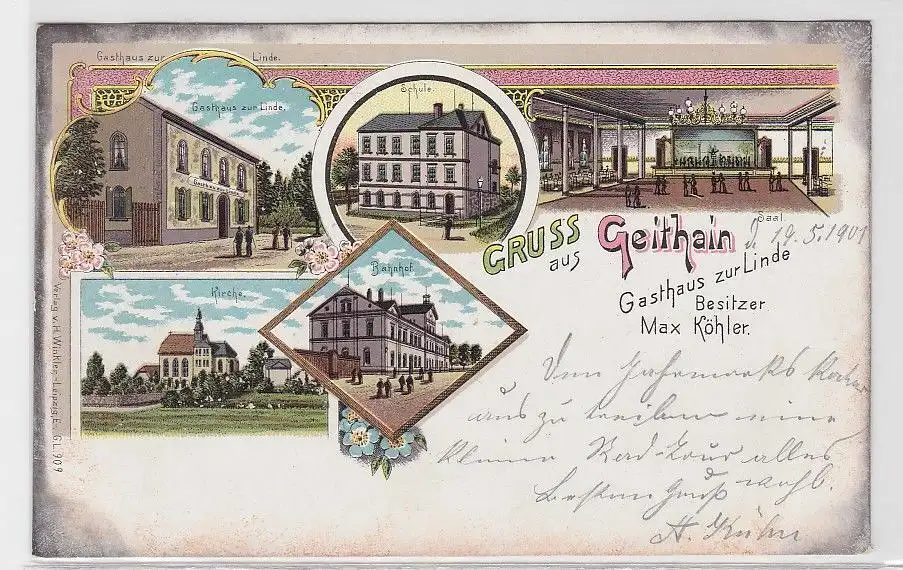 Gasthaus zur Linde.
Gasthaus zur Linde.
Schule.
Saal.
GRUSS aus Geithain
d. 19.5.1901
Gasthaus zur Linde
Besitzer
Max Köhler.
Kirche.
Bahnhof.
Verlag v. H. Winkler, Leipzig, E. GL. 909
Vom Jahrmarks
aus zu treiben eine
kleine Rad-Tour alles
besten Gruß wohl.
A. Kühn